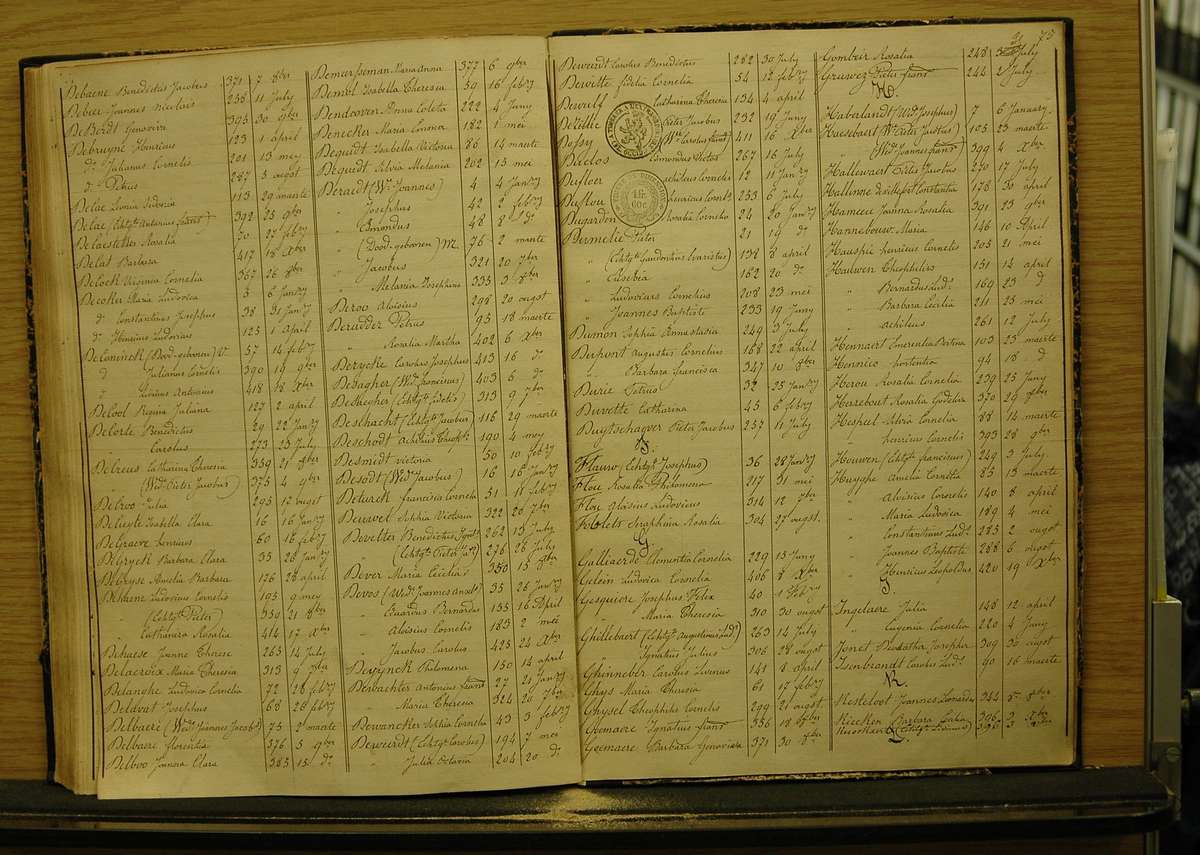 Debaene Benedictus Jacobus 371 7 8ber
Debeer Joannes Nicolais 238 11 July
DeBordt Genoveva 325 30 9ber
Debruyne Henricus 123 1 april
d° Julianus Cornelis 201 13 mey
d° Petrus 287 5 augst
Delae Leonia Ludovica 113 29 maerte
Delae (Echtgte Antonius frans) 392 23 9ber
Delaesteller Rosalia 70 27 feb27
Delat Barbara 417 18 Xber
Delock Virginia Cornelia 367 26 8ber
Decoker Maria Ludovica 3 6 Jan27
d° Constantinus Josephus 38 31 Jan27
d° Henricus Ludovicus 125 1 April
DeConinck (Dood-geboren) V. 57 14 feb27
d° Julianus Cornelis 390 19 9ber
Livinus Antonius 418 18 Xber
DeCool Regina Juliana 127 2 april
DeCorte Benedictus 29 22 Jan27
Carolus 273 23 July
Delreus Catharina Theresia 359 21 8ber
(Wed. Pieter Jacobus) 375 4 9ber
Delroo Julia 293 12 augst
Delieyte Isabella Clara 16 16 Jan27
DeGraeve Henricus 60 16 feb27
DeGryck Barbara Clara 33 28 Jan27
Amelia Barbara 126 28 april
Dehaene Ludovicus Cornelis 195 9 mey
(Echtgte Pieter) 350 21 8ber
Catharina Rosalia 414 17 Xber
Dehaese Joanne Therese 265 14 July
Delacroix Maria Theresia 313 9 7ber
Delanghe Ludovica Cornelia 72 28 feb27
Delavat Josephus 68 26 feb27
Delbaere (Wed. Joannes Jacobs) 75 2 maerte
Delbaere florentia 376 5 9ber
Delboo Joanna Clara 385 15 d°
Demeesseman Maria Anna 377 6 9ber
Demol Isabella Theresia 59 16 feb27
Dendooven Anna Coleta 222 4 Juny
Denecker Maria Louisa 182 1 mei
Dequidt Isabella Victoria 86 14 maerte
Dequidt Silvia Melania 202 13 mei
Deraedt (We Joannes) 4 4 Jan27
" Josephus 42 2 feb27
" Edmondus 48 8 d°
" (Dood-geboren) M. 76 2 maerte
" Jacobus 321 20 7ber
" Melania Josephina 333 3 8ber
Deroo Aloisius 298 20 augst
Deraedder Petrus 95 18 maerte
Rosalia Martha 402 6 Xber
Derycke Carolus Josephus 413 16 d°
Desagher (Wed. franciscus) 403 6 d°
Descheper (Echtgte fidelis) 313 9 7ber
Deschacht (Echtgte Jacobus) 116 29 maerte
Deschodt Achilius Theoph: 190 4 mey
Desmidt victoria 50 10 feb27
Desodt (Wed. Jacobus) 16 16 Jan27
Deturck francisca Cornelia 51 11 feb27
Deurwel Sophia Victoria 322 20 7ber
Devetter Benedictus 262 13 July
(Echtgte Pieter) 276 26 July
Dever Maria Cecilia 350 15 8ber
Devos (Wed. Joannes Anselm) 35 28 Jan27
Eduardus Bernardus 155 16 April
" Aloisius Cornelis 183 2 mei
" Jacobus Carolus 423 24 Xber
Dewynck Philomena 150 14 april
Dewachter Antonius frans 27 21 Jan27
" Maria Theresia 324 20 7ber
Dewancker Sophia Cornelia 43 3 feb27
Deweerdt (Echtgte Carolus) 194 7 mei
" Julia Octavia 204 20 d°
Deweerdt Carolus Benedictus 282 30 July
Dewitte Fidelia Cornelia 54 12 feb27
Dewulf Catharina Theresia 134 4 april
Dezoller Pieter Jacobus 232 19 Juny
Dossy (We Carolus frans) 411 16 Xber
Duclos Edmondus Victor 267 16 July
Duflou Achilius Cornelis 12 11 Jan27
Duflou henricus Cornls 253 6 July
Dugardon Rosalia Cornelia 24 20 Jan27
Dermelie Pieter 21 14 d°
" (Echtgte Gaudentius Evaristus) 138 8 april
" Eusebia 162 20 d°
" Ludovicus Cornelius 208 23 mei
" Joannes Baptiste 233 19 Juny
Dumon Sophia Annastasia 249 3 July
Dupont Augustus Cornelius 168 22 april
" Barbara francisca 347 10 8ber
Durie Petrus 32 25 Jan27
Duvette Catharina 45 6 feb27
Duytschaever Pieter Jacobus 257 11 July
F.
Flauw (Echtgte Josephus) 36 28 Jan27
Flou Rosalia Philomena 217 31 mei
Flou Blasius Ludovicus 314 12 7ber
Folets Seraphina Rosalia 304 27 augst.
G.
Galliaerde Clementia Cornelia 229 15 Juny
Geloin Ludovica Cornelia 406 8 Xber
Gesquiere Josephus Felix 40 1 feb27
Maria Theresia 310 30 augst
Ghillebaert (Echtgte Augustinus Lud.) 263 14 July
Ignatius Julius 306 28 augst
Ghinneber Carolus Livinus 141 1 april
Ghys Maria Theresia 61 17 feb27
Ghysel Theophilis Cornelis 299 21 augst
Goemaere Ignatius frans 356 18 8ber
Goemaere Barbara Genoveva 371 30 8ber
73
Gombeir Rosalia 248 3 July
Gruwez Pieter frans 244 2 July
H.
Haberlandt (Wed. Josephus) 7 6 January
Haesebaert (We Pieter Justus) 105 23 maerte
" (Wed. Joannes frans) 399 4 Xber
Hallewaert Pieter Jacobus 270 17 July
Hallinne Constantia 178 30 april
Hameeu Joanna Rosalia 391 23 9ber
Hannebouw Maria 146 10 April
Hauspie henricus Cornelis 205 21 mei
Hauwen Theophilus 151 14 april
" Bernardus Ludc. 169 23 d°
" Barbara Cecilia 211 25 mei
" Achilius 261 12 July
Hennaert Emerentia Bertina 103 23 maerte
Hennico hortentia 94 18 d°
Herou Rosalia Cornelia 239 25 Juny
Hazebout Rosalia Godeliva 370 29 8ber
Hespeel Silvia Cornelia 88 14 maerte
henricus Cornelis 393 28 9ber
Houwen (Echtgte franciscus) 249 3 July
Huyghe Amelia Cornelia 83 13 maerte
" Aloisius Cornelis 140 8 april
" Maria Ludovica 189 4 mei
" Constantinus Ludc. 285 2 augst
" Joannes Baptiste 288 6 augst
" Henricus Leopoldus 420 19 Xber
J.
Ingelaere Julia 148 12 april
" Eugenia Cornelia 220 4 Juny
Jonet Josepha 309 30 augst
Isenbrandt Carolus Ludc. 90 16 maerte
K.
Kesteloot Joannes Leonardus 344 8ber
Kiecken Barbara
(Echtgte Livinus)